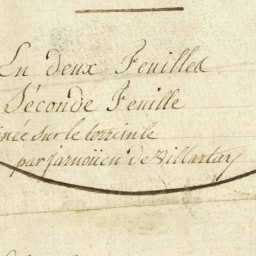 En deux Feuilles
Séconde Feuille
née sur le terrein le
par jarnoüen de Villartay